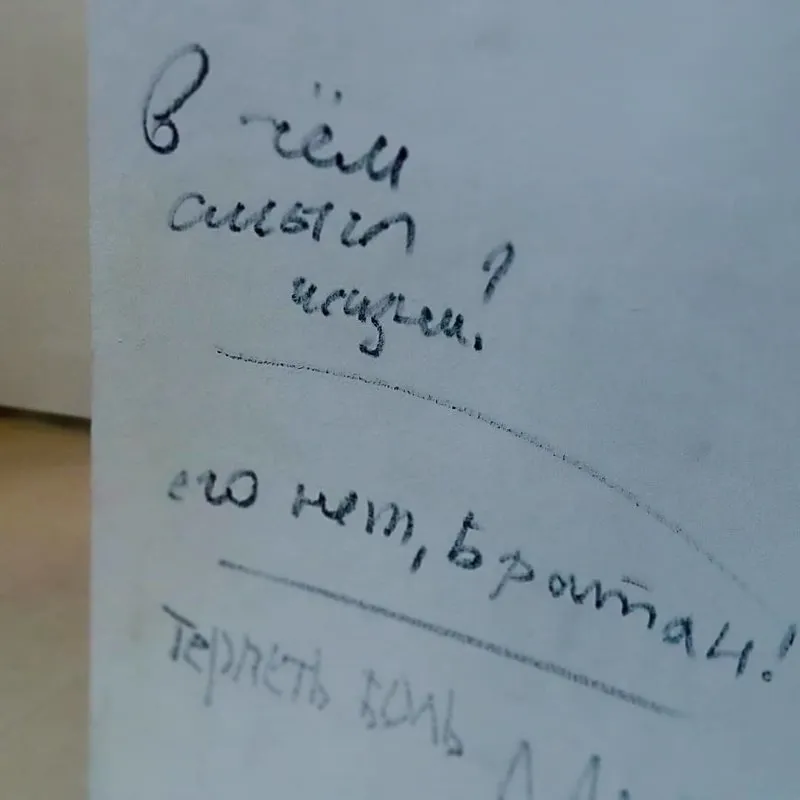 В чём
смысл
жизни?
его нет, братан!
терпеть боль